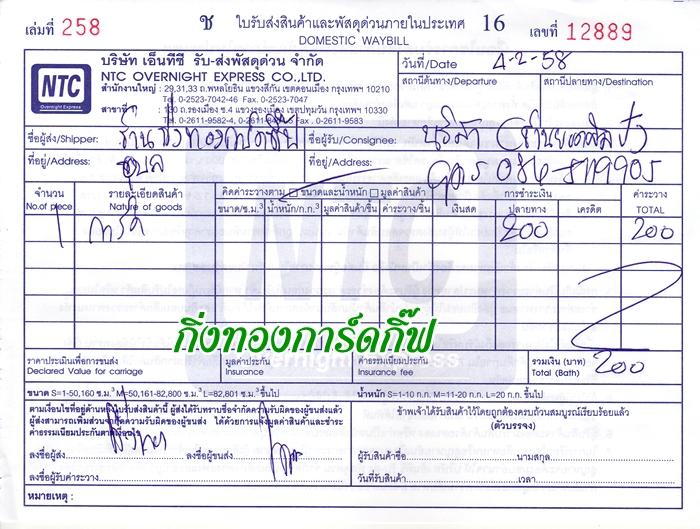 เล่มที่ 258 ช ใบรับส่งสินค้าและพัสดุด่วนภายในประเทศ 16 เลขที่ 12889
DOMESTIC WAYBILL
NTC
Overnight Express
บริษัท เอ็นทีซี รับ-ส่งพัสดุด่วน จำกัด
NTC OVERNIGHT EXPRESS CO.,LTD.
สำนักงานใหญ่ : 29,31,33 ถ.พหลโยธิน แขวงสีกัน เขตดอนเมือง กรุงเทพฯ 10210
Tel. 0-2523-7042-46 Fax. 0-2523-7047
สาขาสี่ : 130 ถ.รองเมือง ซ.4 แขวงรองเมือง เขตปทุมวัน กรุงเทพฯ 10330
Tel. 0-2611-9582-4, Fax. 0-2611-9583
วันที่/Date 4-2-58
สถานีต้นทาง/Departure สถานีปลายทาง/Destination
ชื่อผู้ส่ง/Shipper: ร้านกิ่งทองการ์ดกิ๊ฟ ชื่อผู้รับ/Consignee:
ที่อยู่/Address: อุบล ที่อยู่/Address:
จำนวน รายละเอียดสินค้า คิดค่าระวางตาม ขนาดและน้ำหนัก มูลค่าสินค้า การชำระเงิน ค่าระวาง
No.of piece Nature of goods ขนาด/ซ.ม.³ น้ำหนัก/ก.ก.³ มูลค่าสินค้า/ชิ้น ค่าระวาง/ชิ้น เงินสด ปลายทาง เครดิต TOTAL
1 การ์ด 200 200
NTC
กิ่งทองการ์ดกิ๊ฟ
Overnight Express
ราคาประเมินเพื่อการขนส่ง มูลค่าประกัน ค่าธรรมเนียมประกัน รวมเงิน (บาท) 200
Declared Value for carriage Insurance Insurance fee Total (Bath)
ขนาด S=1-50,160 ซ.ม.³ M=50,161-82,800 ซ.ม.³ L=82,801 ซ.ม.³ขึ้นไป น้ำหนัก S=1-10 ก.ก. M=11-20 ก.ก. L=20 ก.ก. ขึ้นไป
ตามเงื่อนไขที่อยู่ด้านหลังใบรับส่งสินค้านี้ ผู้ส่งได้รับทราบข้อจำกัดความรับผิดของผู้ขนส่งแล้ว
ผู้ส่งสามารถเพิ่มส่วนจำกัดความรับผิดของผู้ขนส่ง ได้ด้วยการแจ้งมูลค่าสินค้าและชำระ
ค่าธรรมเนียมประกันตามเงื่อนไข
ลงชื่อผู้ส่ง ลงชื่อผู้ขนส่ง
ลงชื่อผู้รับค่าระวาง
ข้าพเจ้าได้รับสินค้าไว้โดยถูกต้องครบถ้วนสมบูรณ์เรียบร้อยแล้ว
(ตัวบรรจง)
ผู้รับสินค้าชื่อ นามสกุล
วันที่รับสินค้า เวลา
หมายเหตุ :